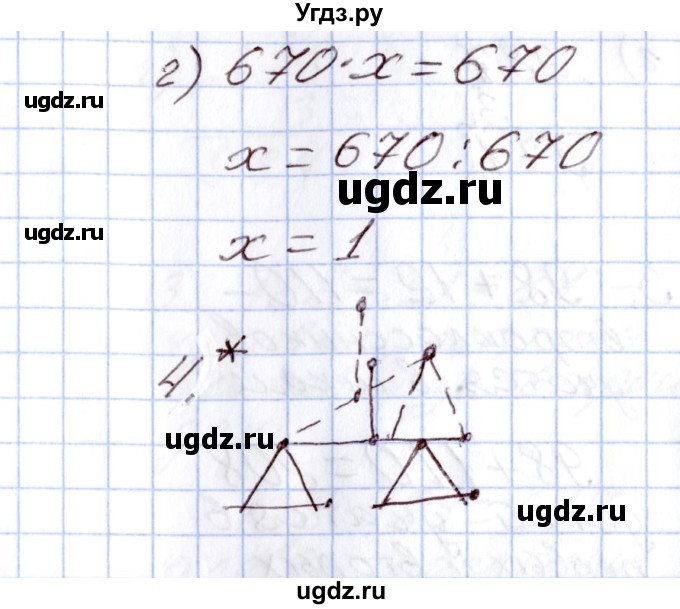 Угдз.ру
г) 670·x = 670
ugdz.ru
x = 670 : 670
ugdz.ru
ugdz.ru
x = 1
4.*
ugdz.ru
ugdz.ru
ugdz.ru